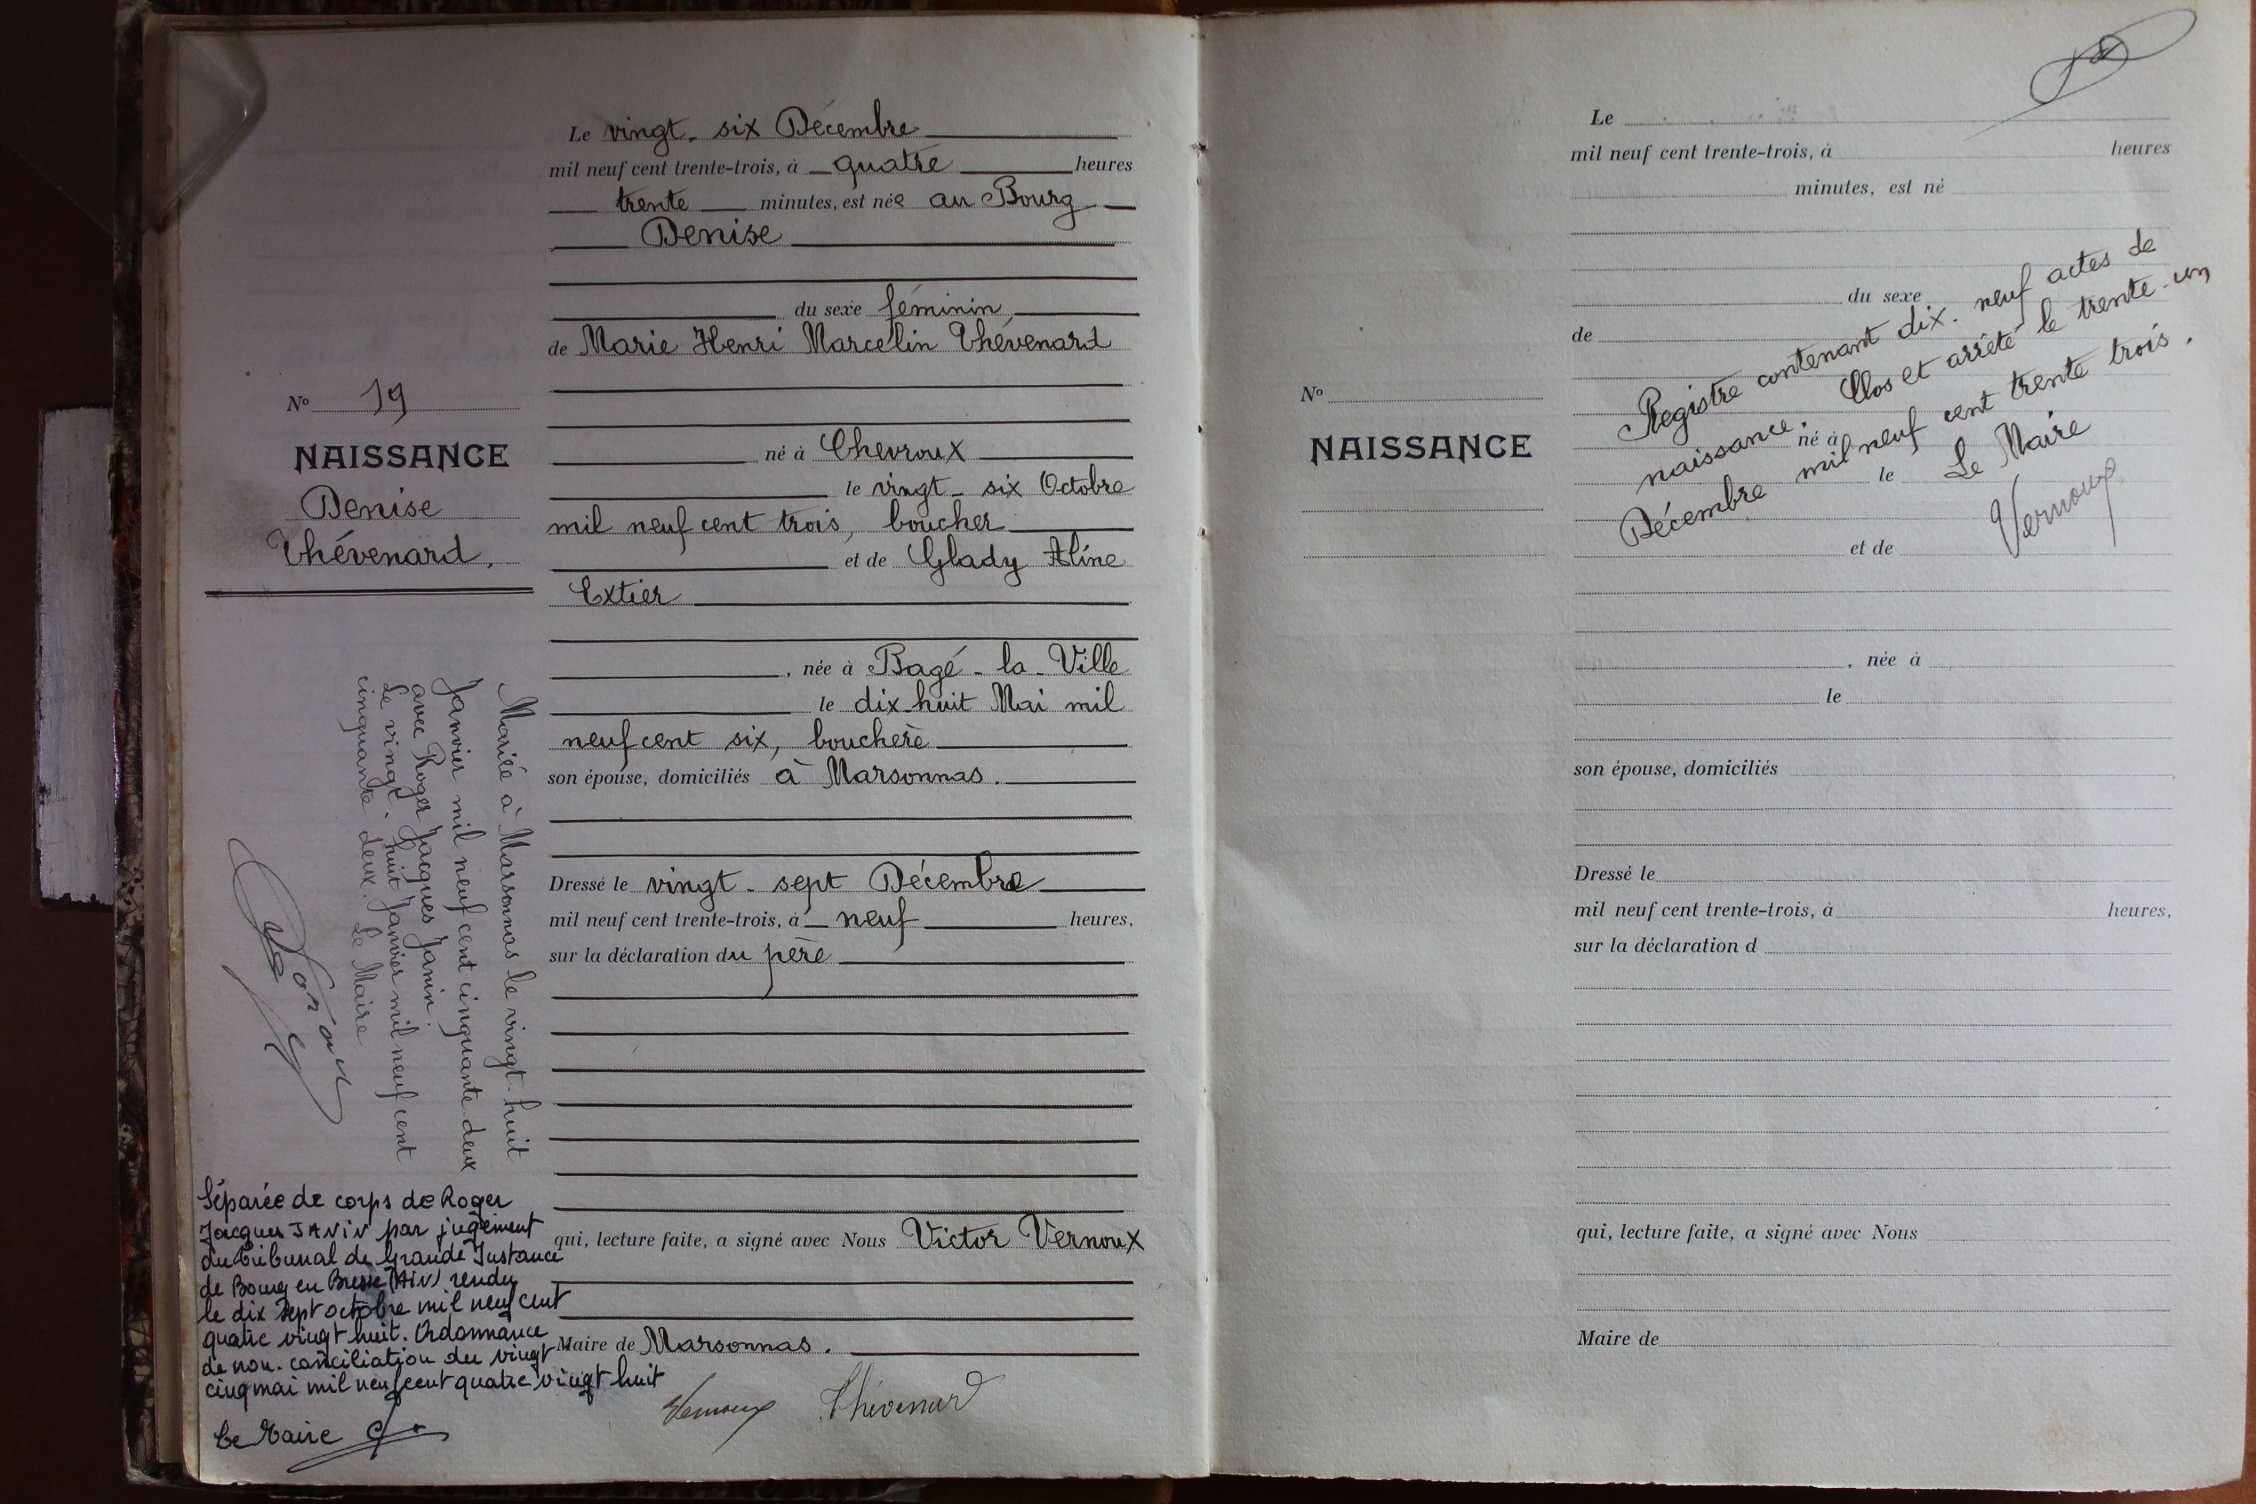 N° 19
NAISSANCE
Denise
Thévenard.
Mariée à Marsonnas le vingt-huit
Janvier mil neuf cent cinquante-deux
avec Roger Jacques Janin.
Le vingt-huit Janvier mil neuf cent
cinquante deux. Le Maire
Séparée de corps de Roger
Jacques JANIN par jugement
du tribunal de Grande Instance
de Bourg en Bresse (AIN) rendu
le dix sept octobre mil neuf cent
quatre vingt huit. Ordonnance
de non-conciliation du vingt
cinq mai mil neuf cent quatre vingt huit
Le Maire
Le vingt-six Décembre
mil neuf cent trente-trois, à quatre heures
trente minutes, est née au Bourg
Denise
du sexe féminin,
de Marie Henri Marcelin Thévenard
né à Chevroux
le vingt-six Octobre
mil neuf cent trois, boucher
et de Glady Aline
Extier
, née à Bagé-la-Ville
le dix-huit Mai mil
neuf cent six, bouchère
son épouse, domiciliés à Marsonnas.
Dressé le vingt-sept Décembre
mil neuf cent trente-trois, à neuf heures,
sur la déclaration du père
qui, lecture faite, a signé avec Nous Victor Vernoux
Maire de Marsonnas.
Vernoux Thévenard
Le
mil neuf cent trente-trois, à heures
minutes, est né
du sexe
de
N°
NAISSANCE
né à
le
et de
, née à
le
son épouse, domiciliés
Dressé le
mil neuf cent trente-trois, à heures,
sur la déclaration d
qui, lecture faite, a signé avec Nous
Maire de
Registre contenant dix-neuf actes de
naissance. Clos et arrêté le trente-un
Décembre mil neuf cent trente trois.
Le Maire
Vernoux